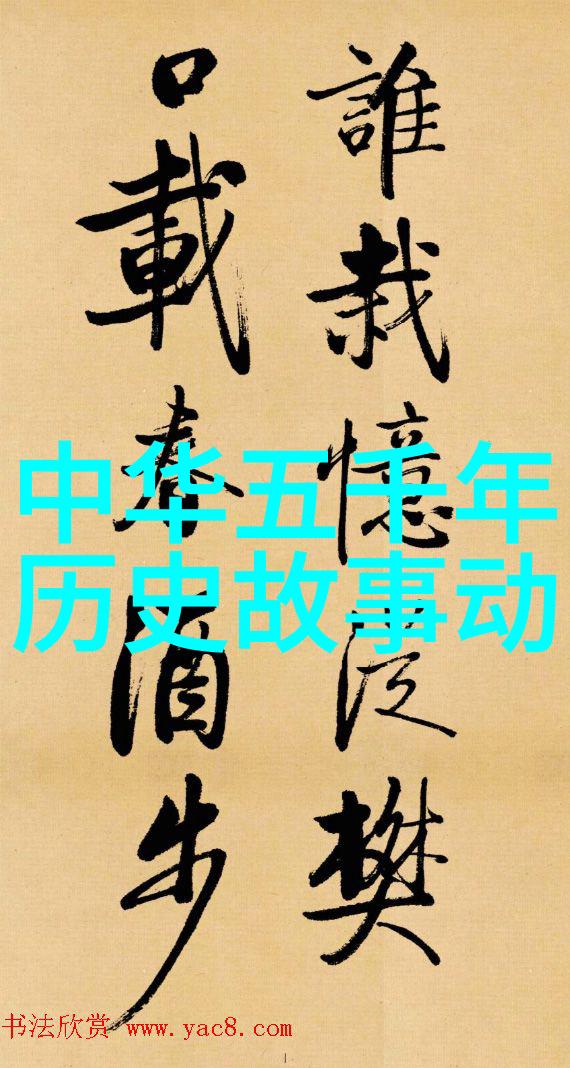 誰栽憶泛樊
口載春酒步
中华五千年
历史故事动
书法欣赏 www.yac8.com